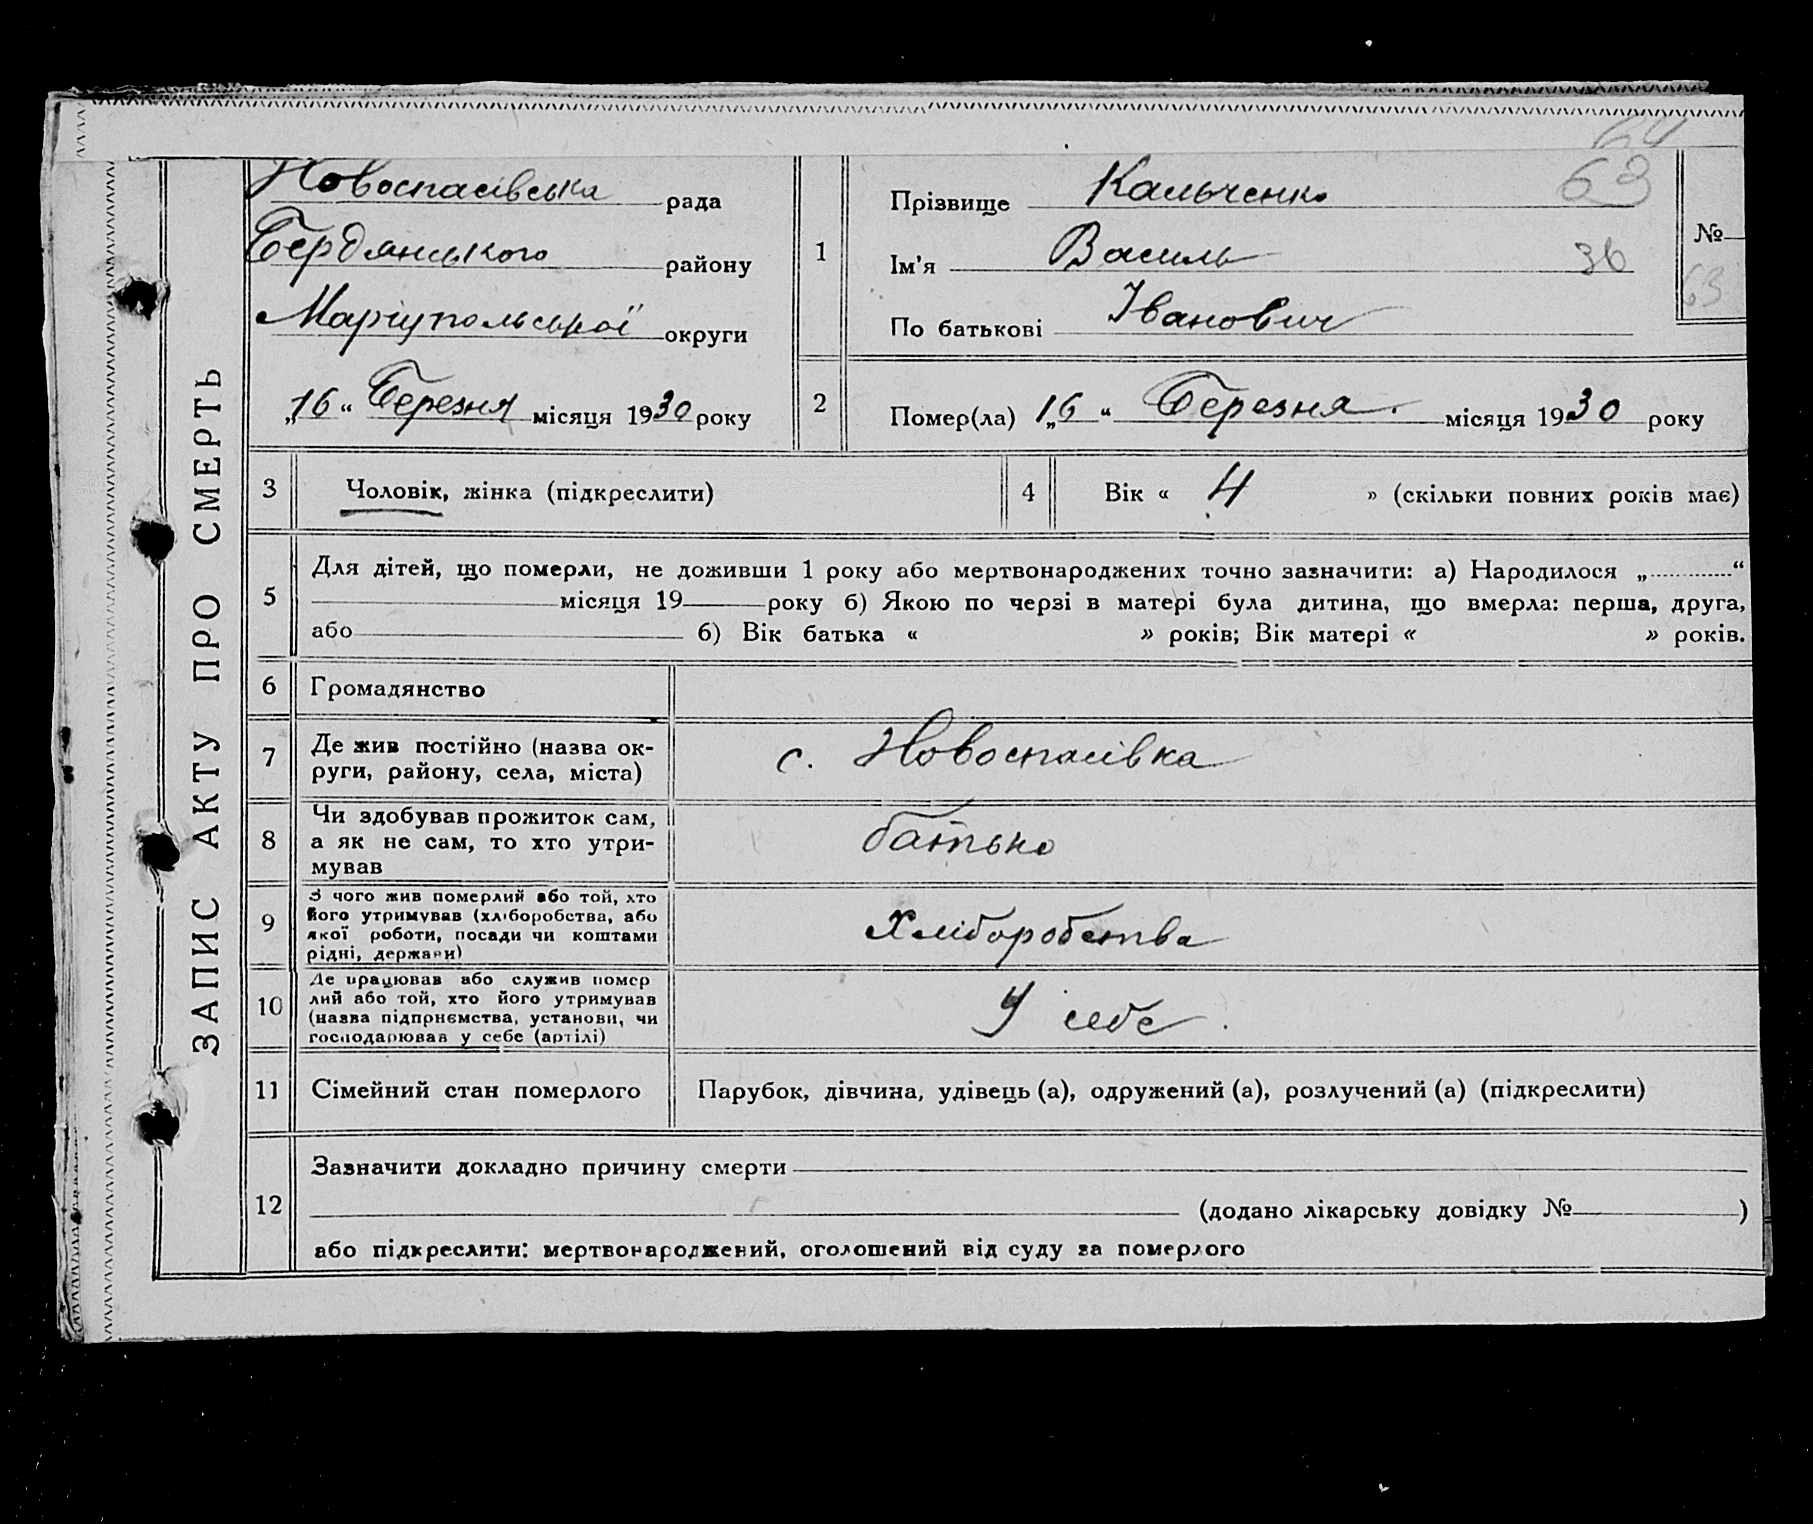 64
Новоспасівська рада
Бердянського району
Маріупольської округи
„16“ Березня місяця 1930 року
1
Прізвище Кальченко 63
Ім'я Василь 36
По батькові Іванович
№
63
2
Помер(ла) „16“ Березня. місяця 1930 року
ЗАПИС АКТУ ПРО СМЕРТЬ
3 Чоловік, жінка (підкреслити)
4 Вік « 4 » (скільки повних років має)
5
Для дітей, що померли, не доживши 1 року або мертвонароджених точно зазначити: а) Народилося „............“
місяця 19 року б) Якою по черзі в матері була дитина, що вмерла: перша, друга,
або б) Вік батька « » років; Вік матері « » років.
6 Громадянство
7
Де жив постійно (назва ок-
руги, району, села, міста)
с. Новоспасівка
8
Чи здобував прожиток сам,
а як не сам, то хто утри-
мував
батько
9
З чого жив померлий або той, хто
його утримував (хліборобства, або
якої роботи, посади чи коштами
рідні, держави)
Хліборобства
10
Де працював або служив помер
лий або той, хто його утримував
(назва підприємства, установи, чи
господарював у себе (артілі)
У себе.
11 Сімейний стан померлого
Парубок, дівчина, удівець (а), одружений (а), розлучений (а) (підкреслити)
12
Зазначити докладно причину смерти
(додано лікарську довідку № )
або підкреслити: мертвонароджений, оголошений від суду за померлого